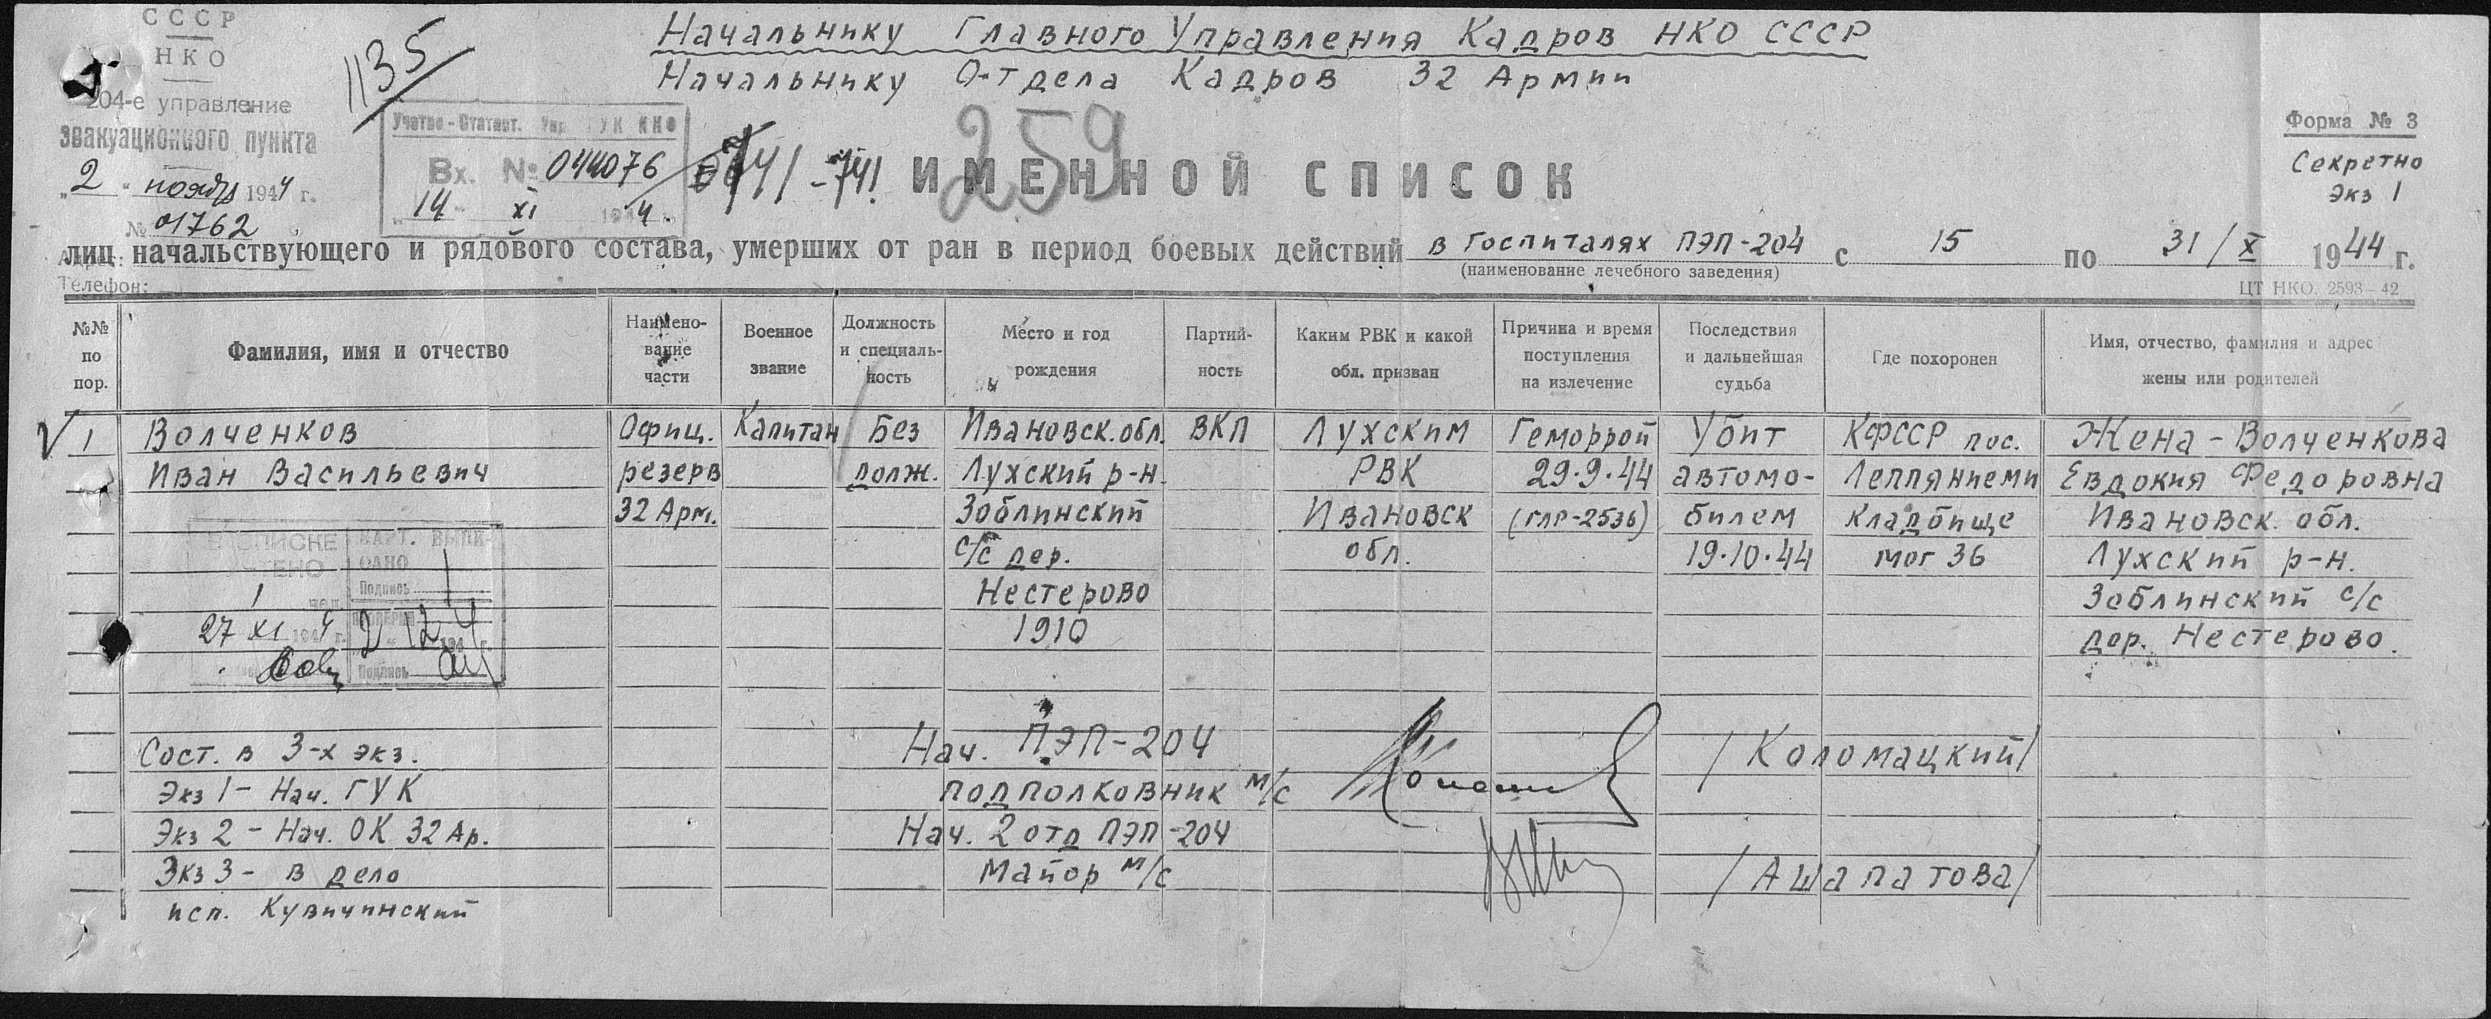 СССР
НКО
204-е управление
эвакуационного пункта
„2“ ноября 1944 г.
№ 01762
Адрес:
Телефон:
1135
Учетно-Статист. Упр. ГУК НКО
Вх. № 044076
14 XI 1944.
741 -741
259
Начальнику Главного Управления Кадров НКО СССР
Начальнику Отдела Кадров 32 Армии
Форма № 3
Секретно
Экз 1
ИМЕННОЙ СПИСОК
лиц начальствующего и рядового состава, умерших от ран в период боевых действий в госпиталях ПЭП-204 с 15 по 31/X 1944 г.
(наименование лечебного заведения)
ЦТ НКО. 2593—42
№№ по пор.
Фамилия, имя и отчество
Наимено-вание части
Военное звание
Должность и специаль-ность
Место и год рождения
Партий-ность
Каким РВК и какой обл. призван
Причина и время поступления на излечение
Последствия и дальнейшая судьба
Где похоронен
Имя, отчество, фамилия и адрес жены или родителей
V 1 Волченков Офиц. Капитан Без Ивановск. обл. ВКП Лухским Геморрой Убит КФССР пос. Жена - Волченкова
Иван Васильевич резерв долж. Лухский р-н. РВК 29.9.44 автомо- Леппяниеми Евдокия Федоровна
32 Арм. Зоблинский Ивановск (ГЛР-2536) билем кладбище Ивановск. обл.
с/с дер. обл. 19.10.44 мог 36 Лухский р-н.
Нестерово Зоблинский с/с
1910 дер. Нестерово.
В СПИСКЕ
УЧТЕНО
1 чел.
27 XI 1944 г.
КАРТ. ВЫПИ-
САНО 1
Подпись
ПРОВЕРИЛ
2 12 194 г.
Подпись
Сост. в 3-х экз. Нач. ПЭП-204 /Коломацкий/
Экз 1 - Нач. ГУК подполковник м/с
Экз 2 - Нач. ОК 32 Ар. Нач. 2 отд ПЭП-204
Экз 3 - в дело майор м/с /Ашапатова/
исп. Кувичинский